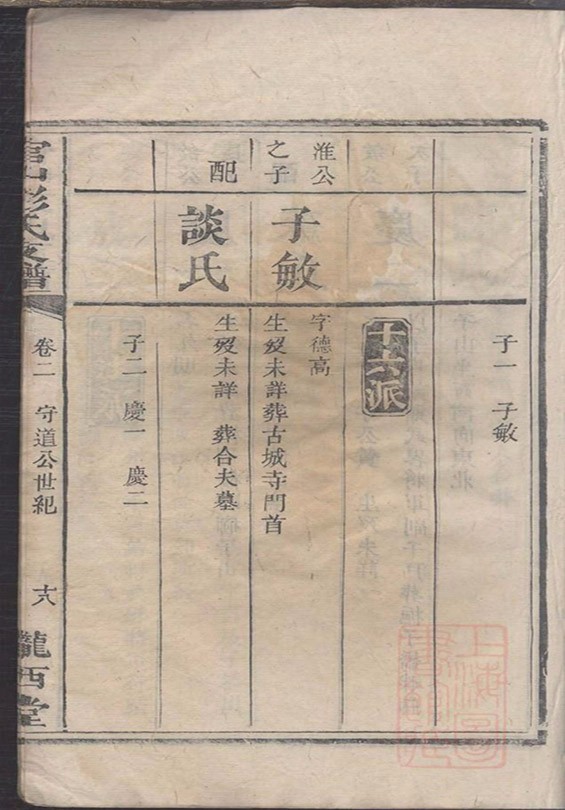 子一 子敏
十六派
淮公
之子
子敏
字德高
生歿未詳葬古城寺門首
配
談氏
生歿未詳 葬合夫墓
子二 慶一 慶二
官山彭氏支譜
卷二 守道公世紀
十八
隴西堂